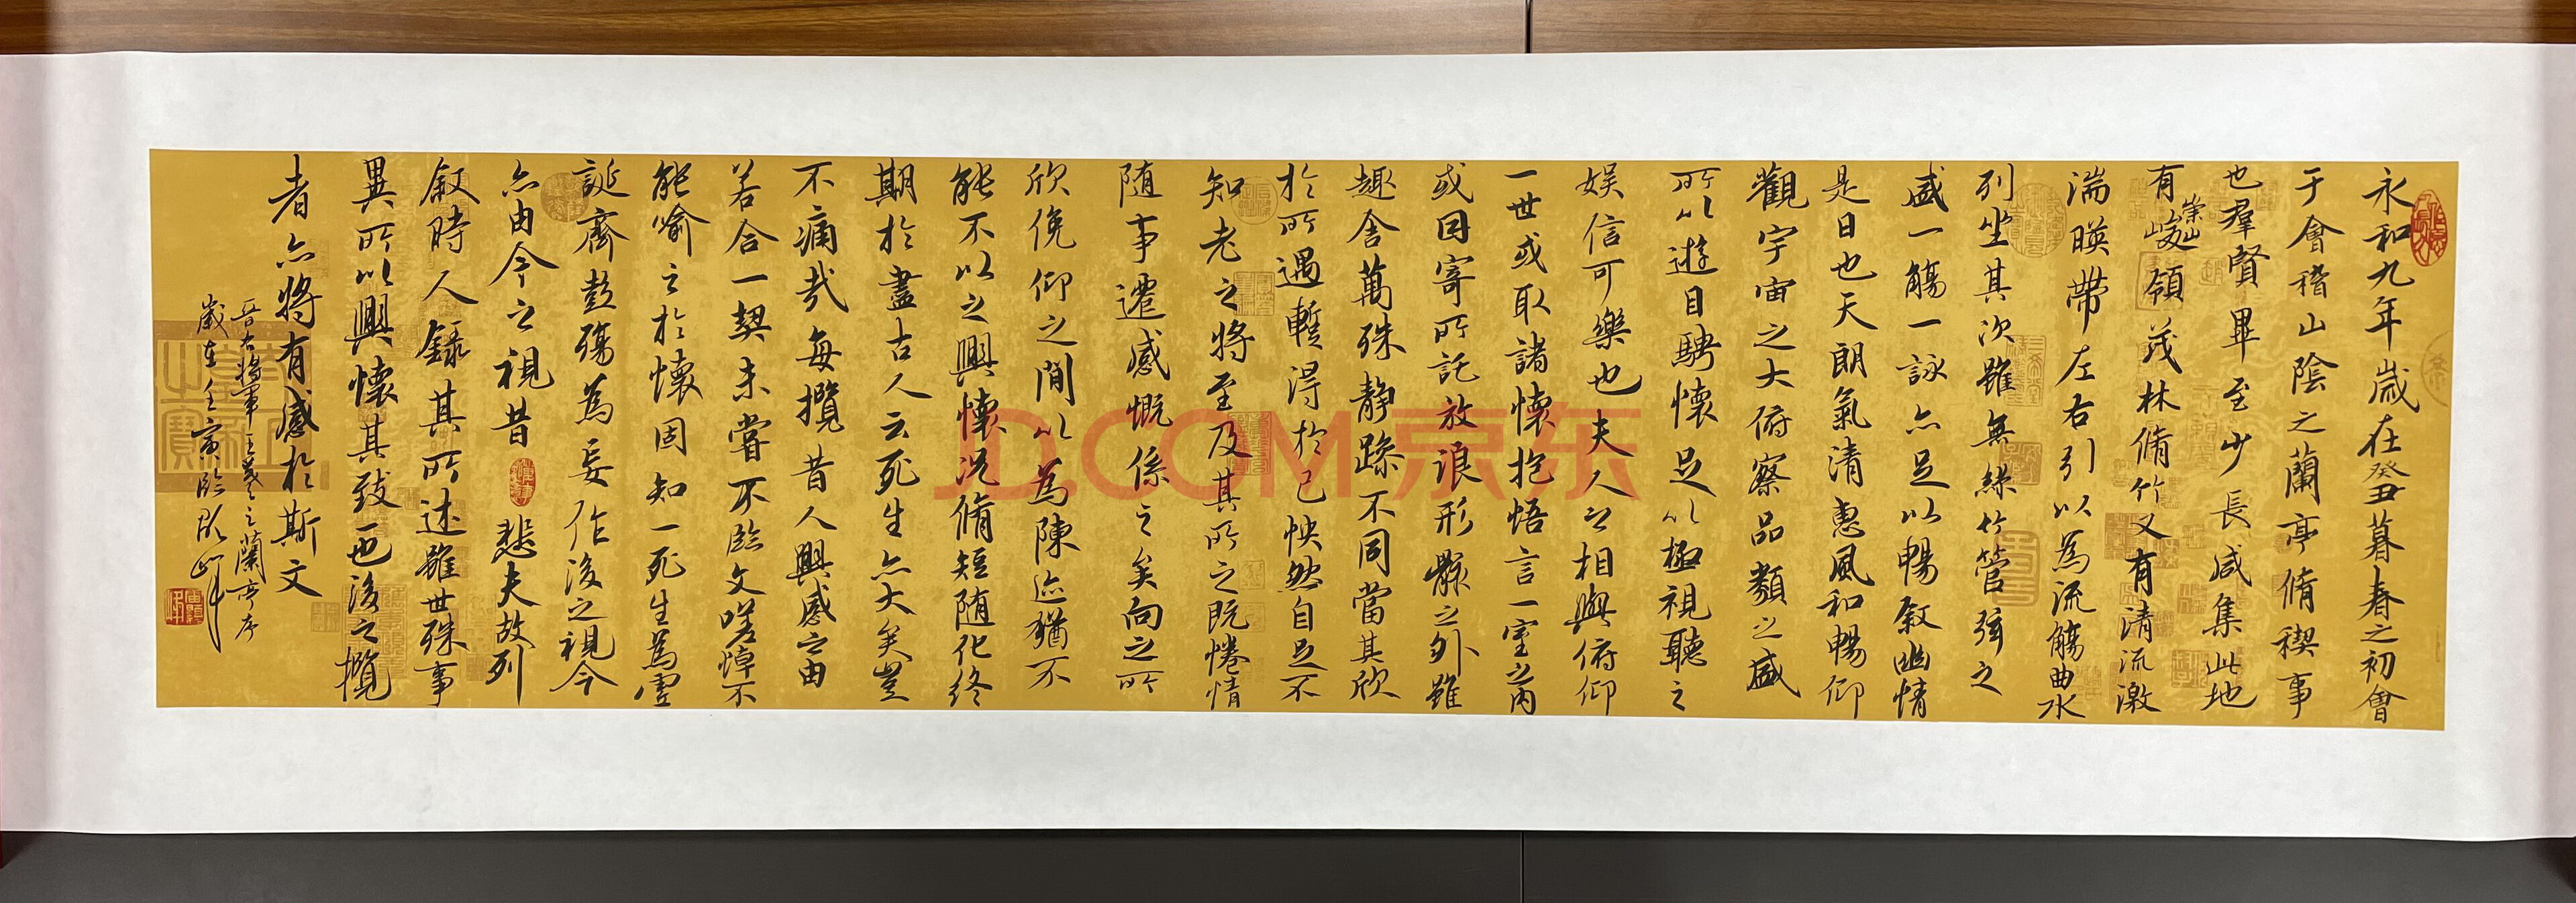 永和九年歲在癸丑暮春之初會
于會稽山陰之蘭亭脩稧事
也羣賢畢至少長咸集此地
有崇山峻領茂林脩竹又有清流激
湍暎帶左右引以為流觴曲水
列坐其次雖無絲竹管弦之
盛一觴一詠亦足以暢叙幽情
是日也天朗氣清惠風和暢仰
觀宇宙之大俯察品類之盛
所以遊目騁懷足以極視聽之
娛信可樂也夫人之相與俯仰
一世或取諸懷抱悟言一室之內
或因寄所託放浪形骸之外雖
趣舍萬殊静躁不同當其欣
於所遇蹔得於己怏然自足不
知老之將至及其所之既惓情
隨事遷感慨係之矣向之所
欣俛仰之閒以為陳迹猶不
能不以之興懷況脩短隨化終
期於盡古人云死生亦大矣豈
不痛哉每攬昔人興感之由
若合一契未嘗不臨文嗟悼不
能喻之於懷固知一死生為虛
誕齊彭殤為妄作後之視今
亦由今之視昔悲夫故列
叙時人錄其所述雖世殊事
異所以興懷其致一也後之攬
者亦將有感於斯文
晉右將軍王羲之蘭亭序
歲在壬寅臨
JD.COM京东
三希堂